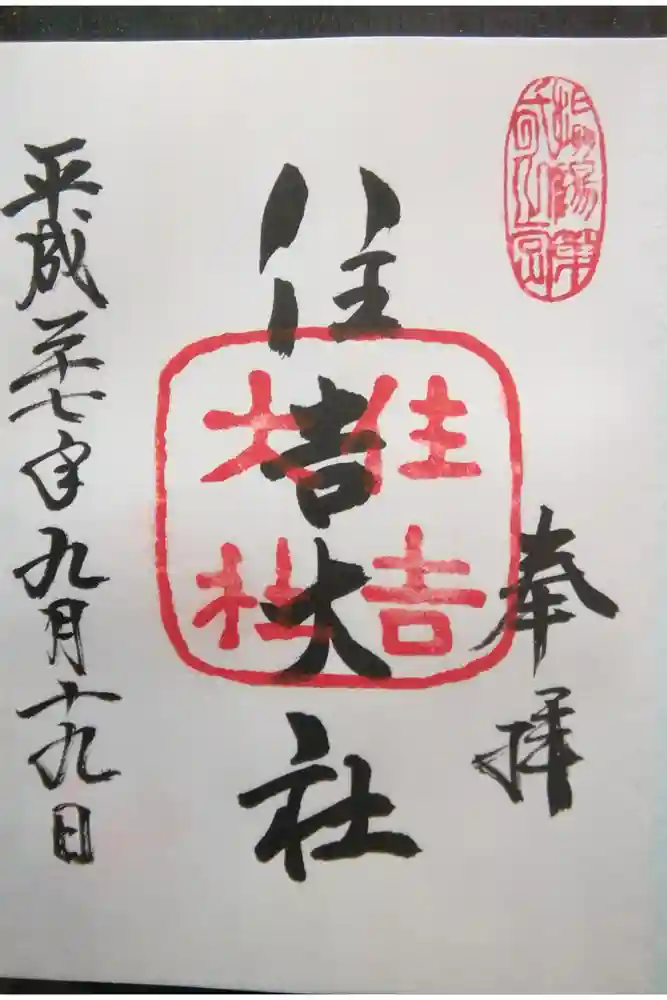 奉拝
住吉大社
住吉
大社
平成二十七年九月十九日